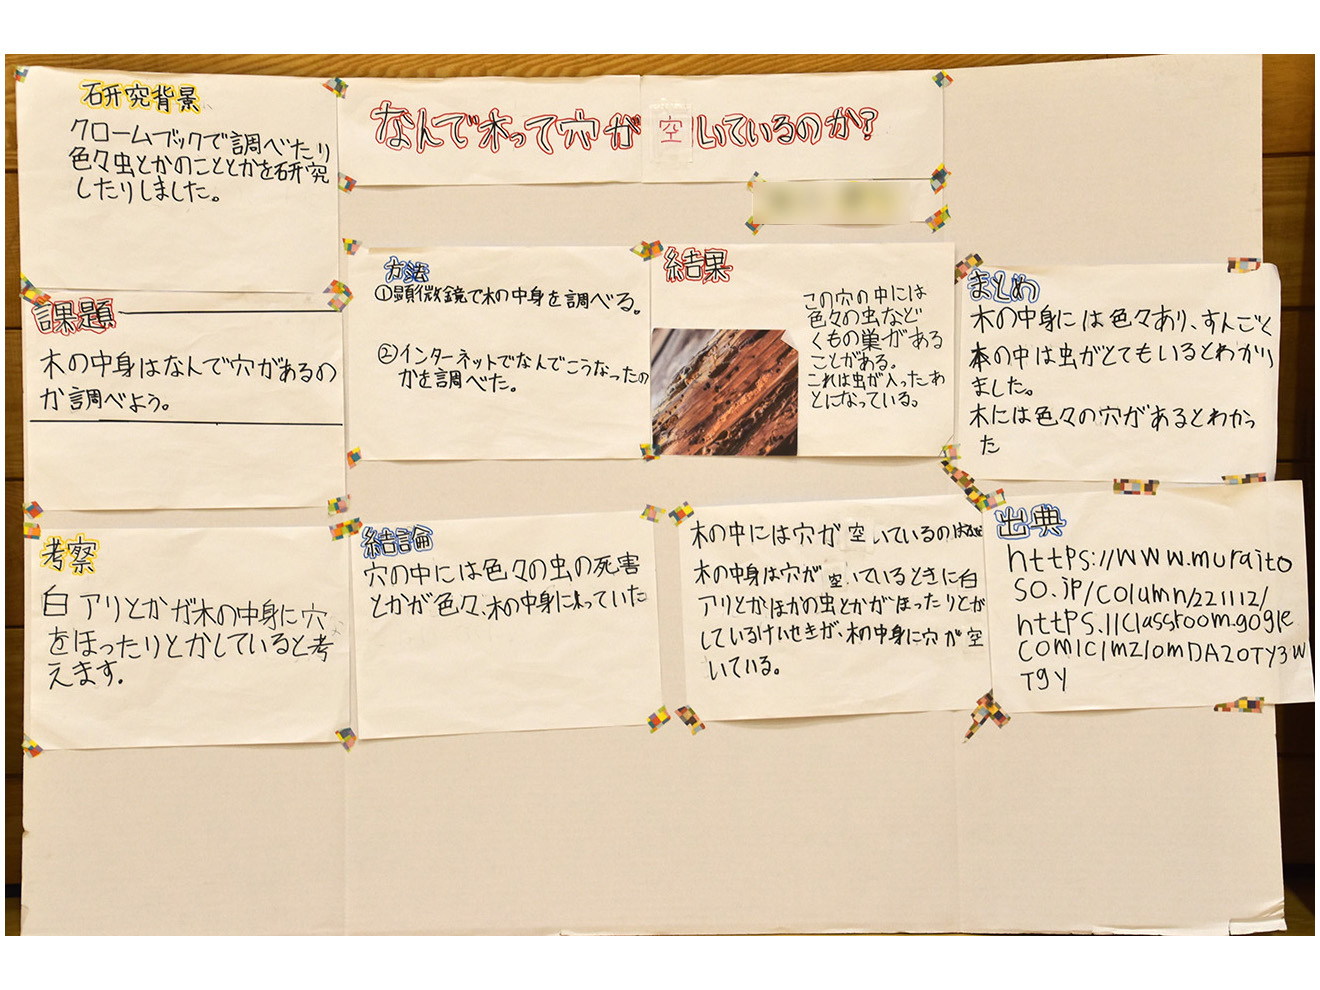 なんで木って穴が空いているのか?
研究背景
クロームブックで調べたり
色々虫とかのこととかを研究
したりしました。
課題
木の中身はなんで穴があるの
か調べよう。
方法
①顕微鏡で木の中身を調べる。
②インターネットでなんでこうなったの
かを調べた。
結果
この穴の中には
色々の虫など
くもの巣がある
ことがある。
これは虫が入ったあ
とになっている。
まとめ
木の中身には色々あり、すんごく
木の中は虫がとてもいるとわかり
ました。
木には色々の穴があるとわかっ
た
考察
白アリとかが木の中身に穴
をほったりとかしていると考
えます。
結論
穴の中には色々の虫の死害
とかが色々、木の中身に入っていた
木の中には穴が空いているのは
木の中身は穴が空いているときに白
アリとかほかの虫とかがほったりとか
しているけいせきが、木の中身に穴が空
いている。
出典
https://www.muraito
so.jp/column/221112/
https.//classroom.gogle
com/c/mz/omDA20TY3W
T9Y